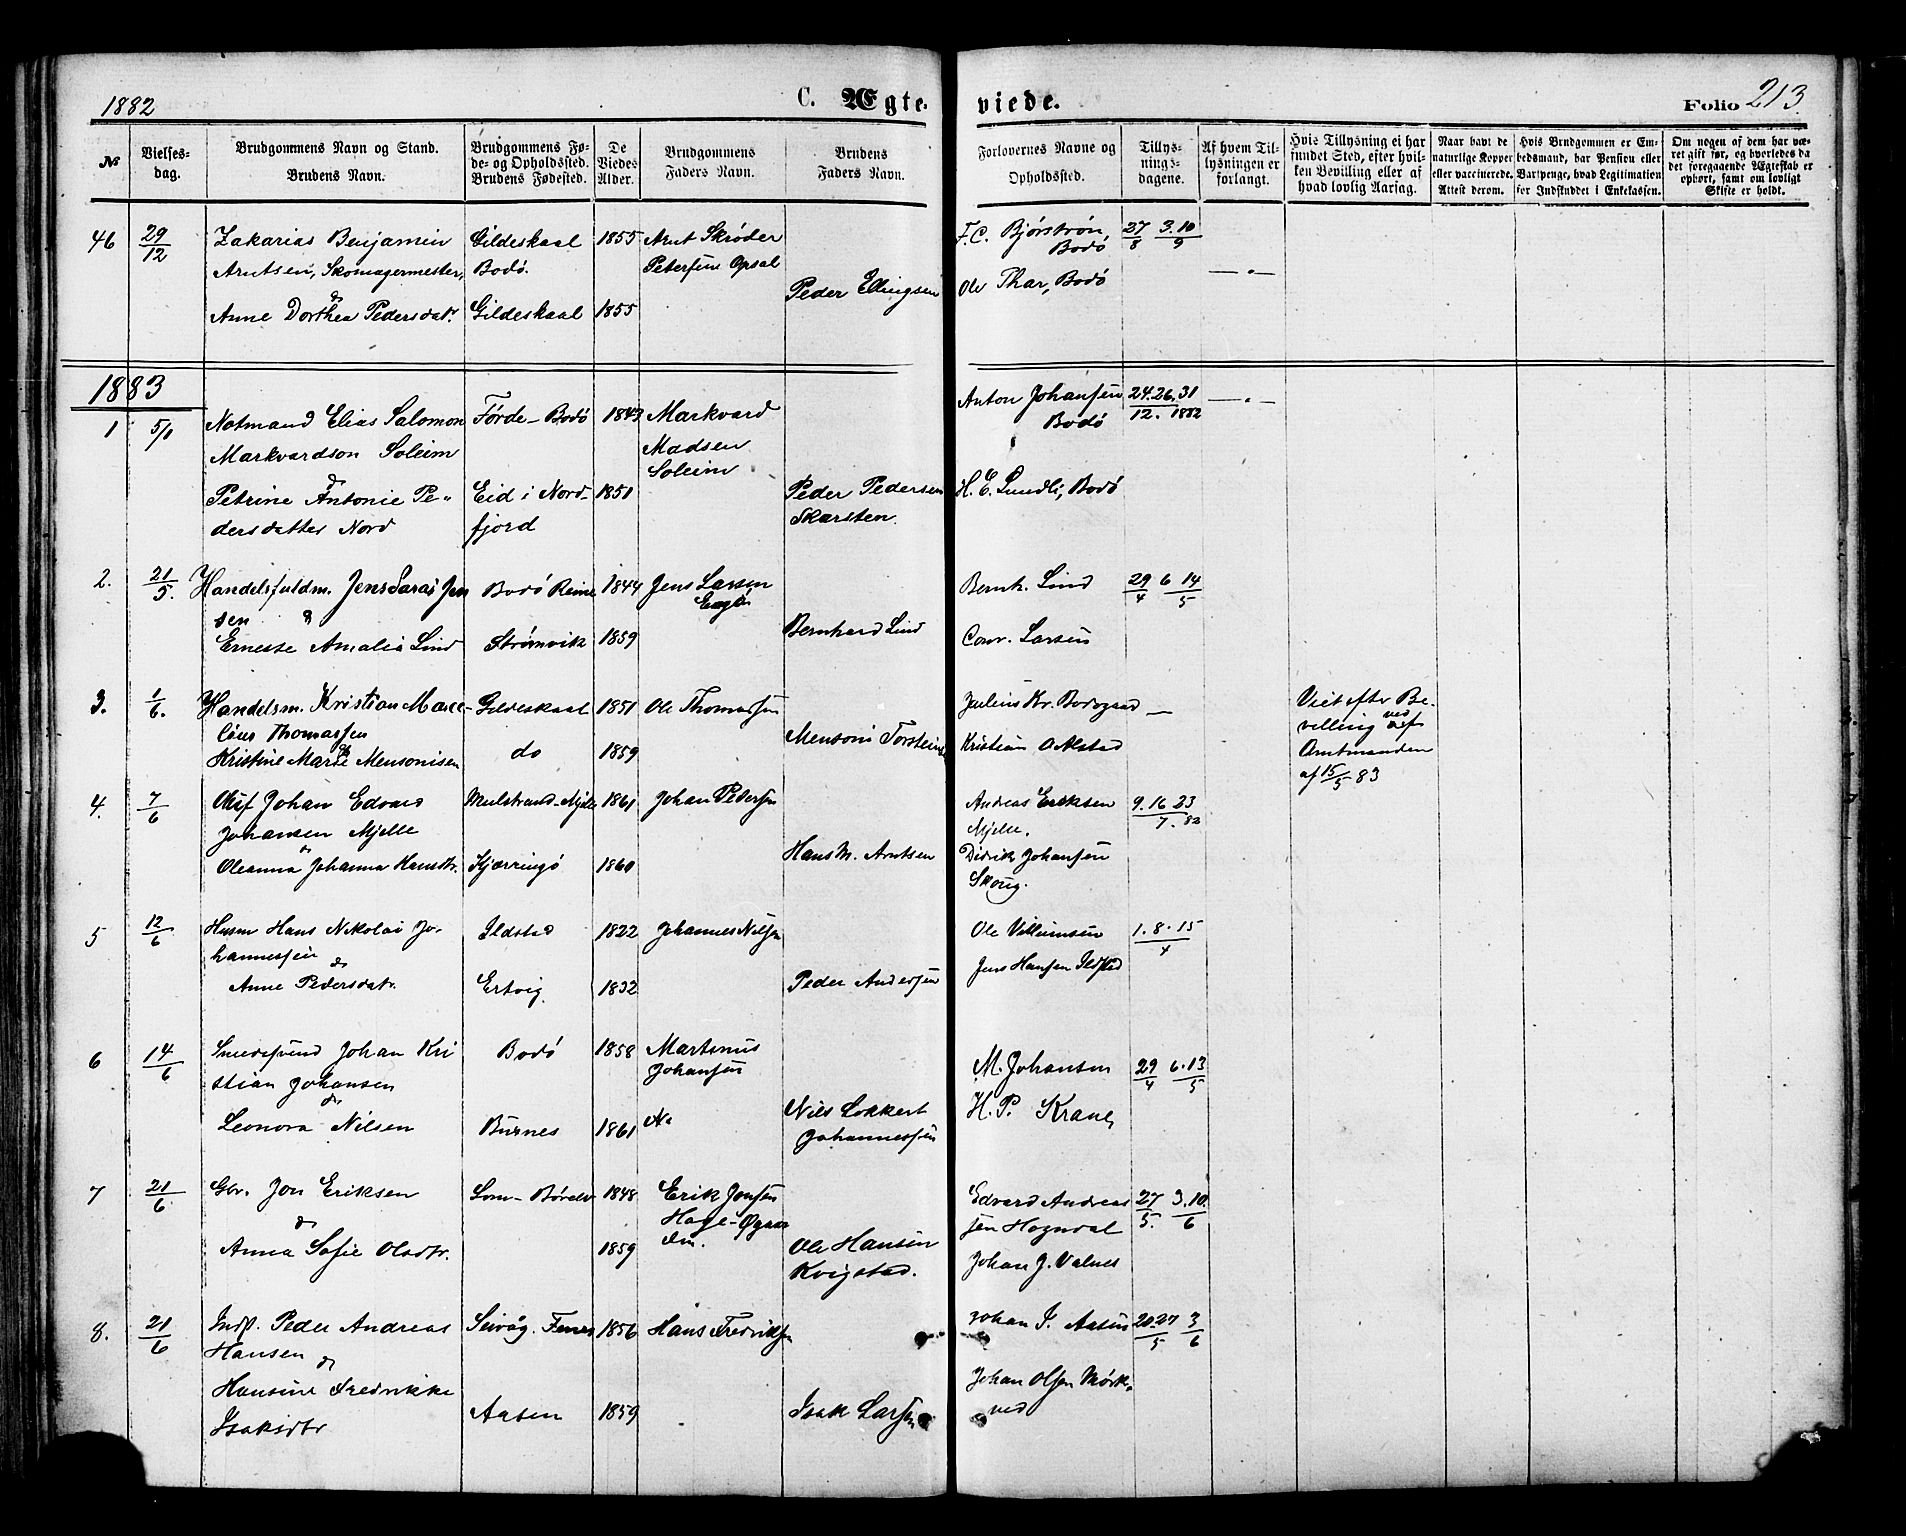 1882 C. Ægte-
viede. Folio 213
№
Vielses-
dag.
Brudgommens Navn og Stand.
Brudens Navn.
Brudgommens Fø-
de- og Opholdssted.
Brudens Fødested.
De
Viedes
Alder.
Brudgommens
Faders Navn.
Brudens
Faders Navn.
Forlovernes Navne og
Opholdssted.
Tillys-
nings-
dagene.
Af hvem Til-
lysningen er
forlangt.
Hvis Tillysning ei har
fundet Sted, efter hvil-
ken Bevilling eller af
hvad lovlig Aarsag.
Naar havt de
naturlige Kopper
eller vaccinerede.
Attest derom.
Hvis Brudgommen er Em-
bedsmand, har Pension eller
Vartpenge, hvad Legitimation
for Indskuddet i Enkekassen.
Om nogen af dem har væ-
ret gift før, og hvorledes da
det foregaaende Ægteskab er
ophørt, samt om lovligt
Skifte er holdt.
46 29/12 Zakarias Benjamin Gildeskaal 1855 Arnt Skrøder F.C. Bjørstrøn, 27/8 3.10/9
Arntsen, Skomagermester, Bodø. Petersen Opsal Bodø
& Peder Ellingsen Ole Thar, Bodø
Anne Dorthea Pedersdatr. Gildeskaal 1855
1883
1 5/1 Notmand Elias Salomon Førde - Bodø 1843 Markvard Anton Johansen 24.26.31/12. 1882
Markvardson Soleim Madsen Bodø
& Soleim
Petrine Antonie Pe- Eid i Nord- 1851 Peder Pedersen H. E. Lundli, Bodø
dersdatter Nord fjord Skarsten.
2. 21/5. Jens Jen Bodø Reine 1844 Jens Larsen Bernh. Lind 29/4 6 14/5
sen &
Ernesse Amalia Lind Strømvik 1859 Bernhard Lind Conr. Larsen
3. 1/6. Handelsm. Kristian Marce- Gildeskaal 1851 Ole Thomassen Julius Kr. — Viet efter Be-
lius Thomassen villing ved
& Amtmanden
Kristine Marie Mensonisen do 1859 Mensoni Kristian af 15/5 83
4. 7/6 Johan Edvard Mjelle 1861 Johan Pedersen Andreas Eriksen 9.16 23/7. 82
Johansen Mjelle Mjelle.
& Oleanna Johanna Hansdtr. Kjærringø 1860 Hans M. Arntsen Didrik Johansen
Skoug.
5 12/6 Husm Hans Nikolai Jo- Ildstad 1822 Johannes Nilsen Ole 1.8.15/4
hannessen Jens Hansen Ildstad
& Anne Pedersdatr. Ertvig. 1832 Peder Andersen
6 14/6 Smedsvend Johan Kri Bodø 1858 Martinus M. Johansen 29/4 6.13/5
stian Johansen Johansen
& Leonora Nilsen Burnes 1861 Nils Lokkert H. P. Krane
Johannessen
7 21/6 Gbr. Jon Eriksen Lom - 1848 Erik Jonsen Edvard Andreas 27/5. 3.10/6
& sen Hogndal
Anna Sofie Olsdtr. 1859 Ole Hansen Johan J. Valnes
Kvigstad.
8. 21/6 Indst. Peder Andreas Seivåg. Fenes 1856 Hans Fredriksen Johan I. Aasen 20.27/5 3/6
Hansen &
Hansine Fredrikke Aasen 1859 Isak Larsen Johan Olsen Mørk-
Isaksdtr ved